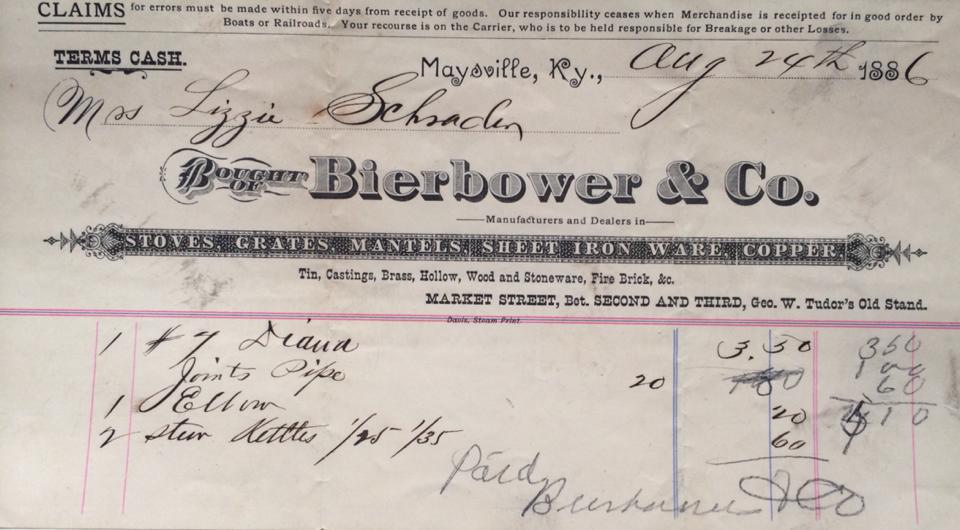 CLAIMS for errors must be made within five days from receipt of goods. Our responsibility ceases when Merchandise is receipted for in good order by
Boats or Railroads. Your recourse is on the Carrier, who is to be held responsible for Breakage or other Losses.
TERMS CASH.
Maysville, Ky., Aug 24th 1886
Mrs Lizzie Schrader
BOUGHT OF Bierbower & Co.
Manufacturers and Dealers in
STOVES, GRATES, MANTELS, SHEET IRON WARE, COPPER,
Tin, Castings, Brass, Hollow, Wood and Stoneware, Fire Brick, &c.
MARKET STREET, Bet. SECOND AND THIRD, Geo. W. Tudor's Old Stand.
Davis, Steam Print.
1 # 7 Diana 3.50 350
Joints Pipe 20 100
1 Elbow 20 60
2 Stew Kettles 1/25 1/35 60
Paid
Bierbower & Co